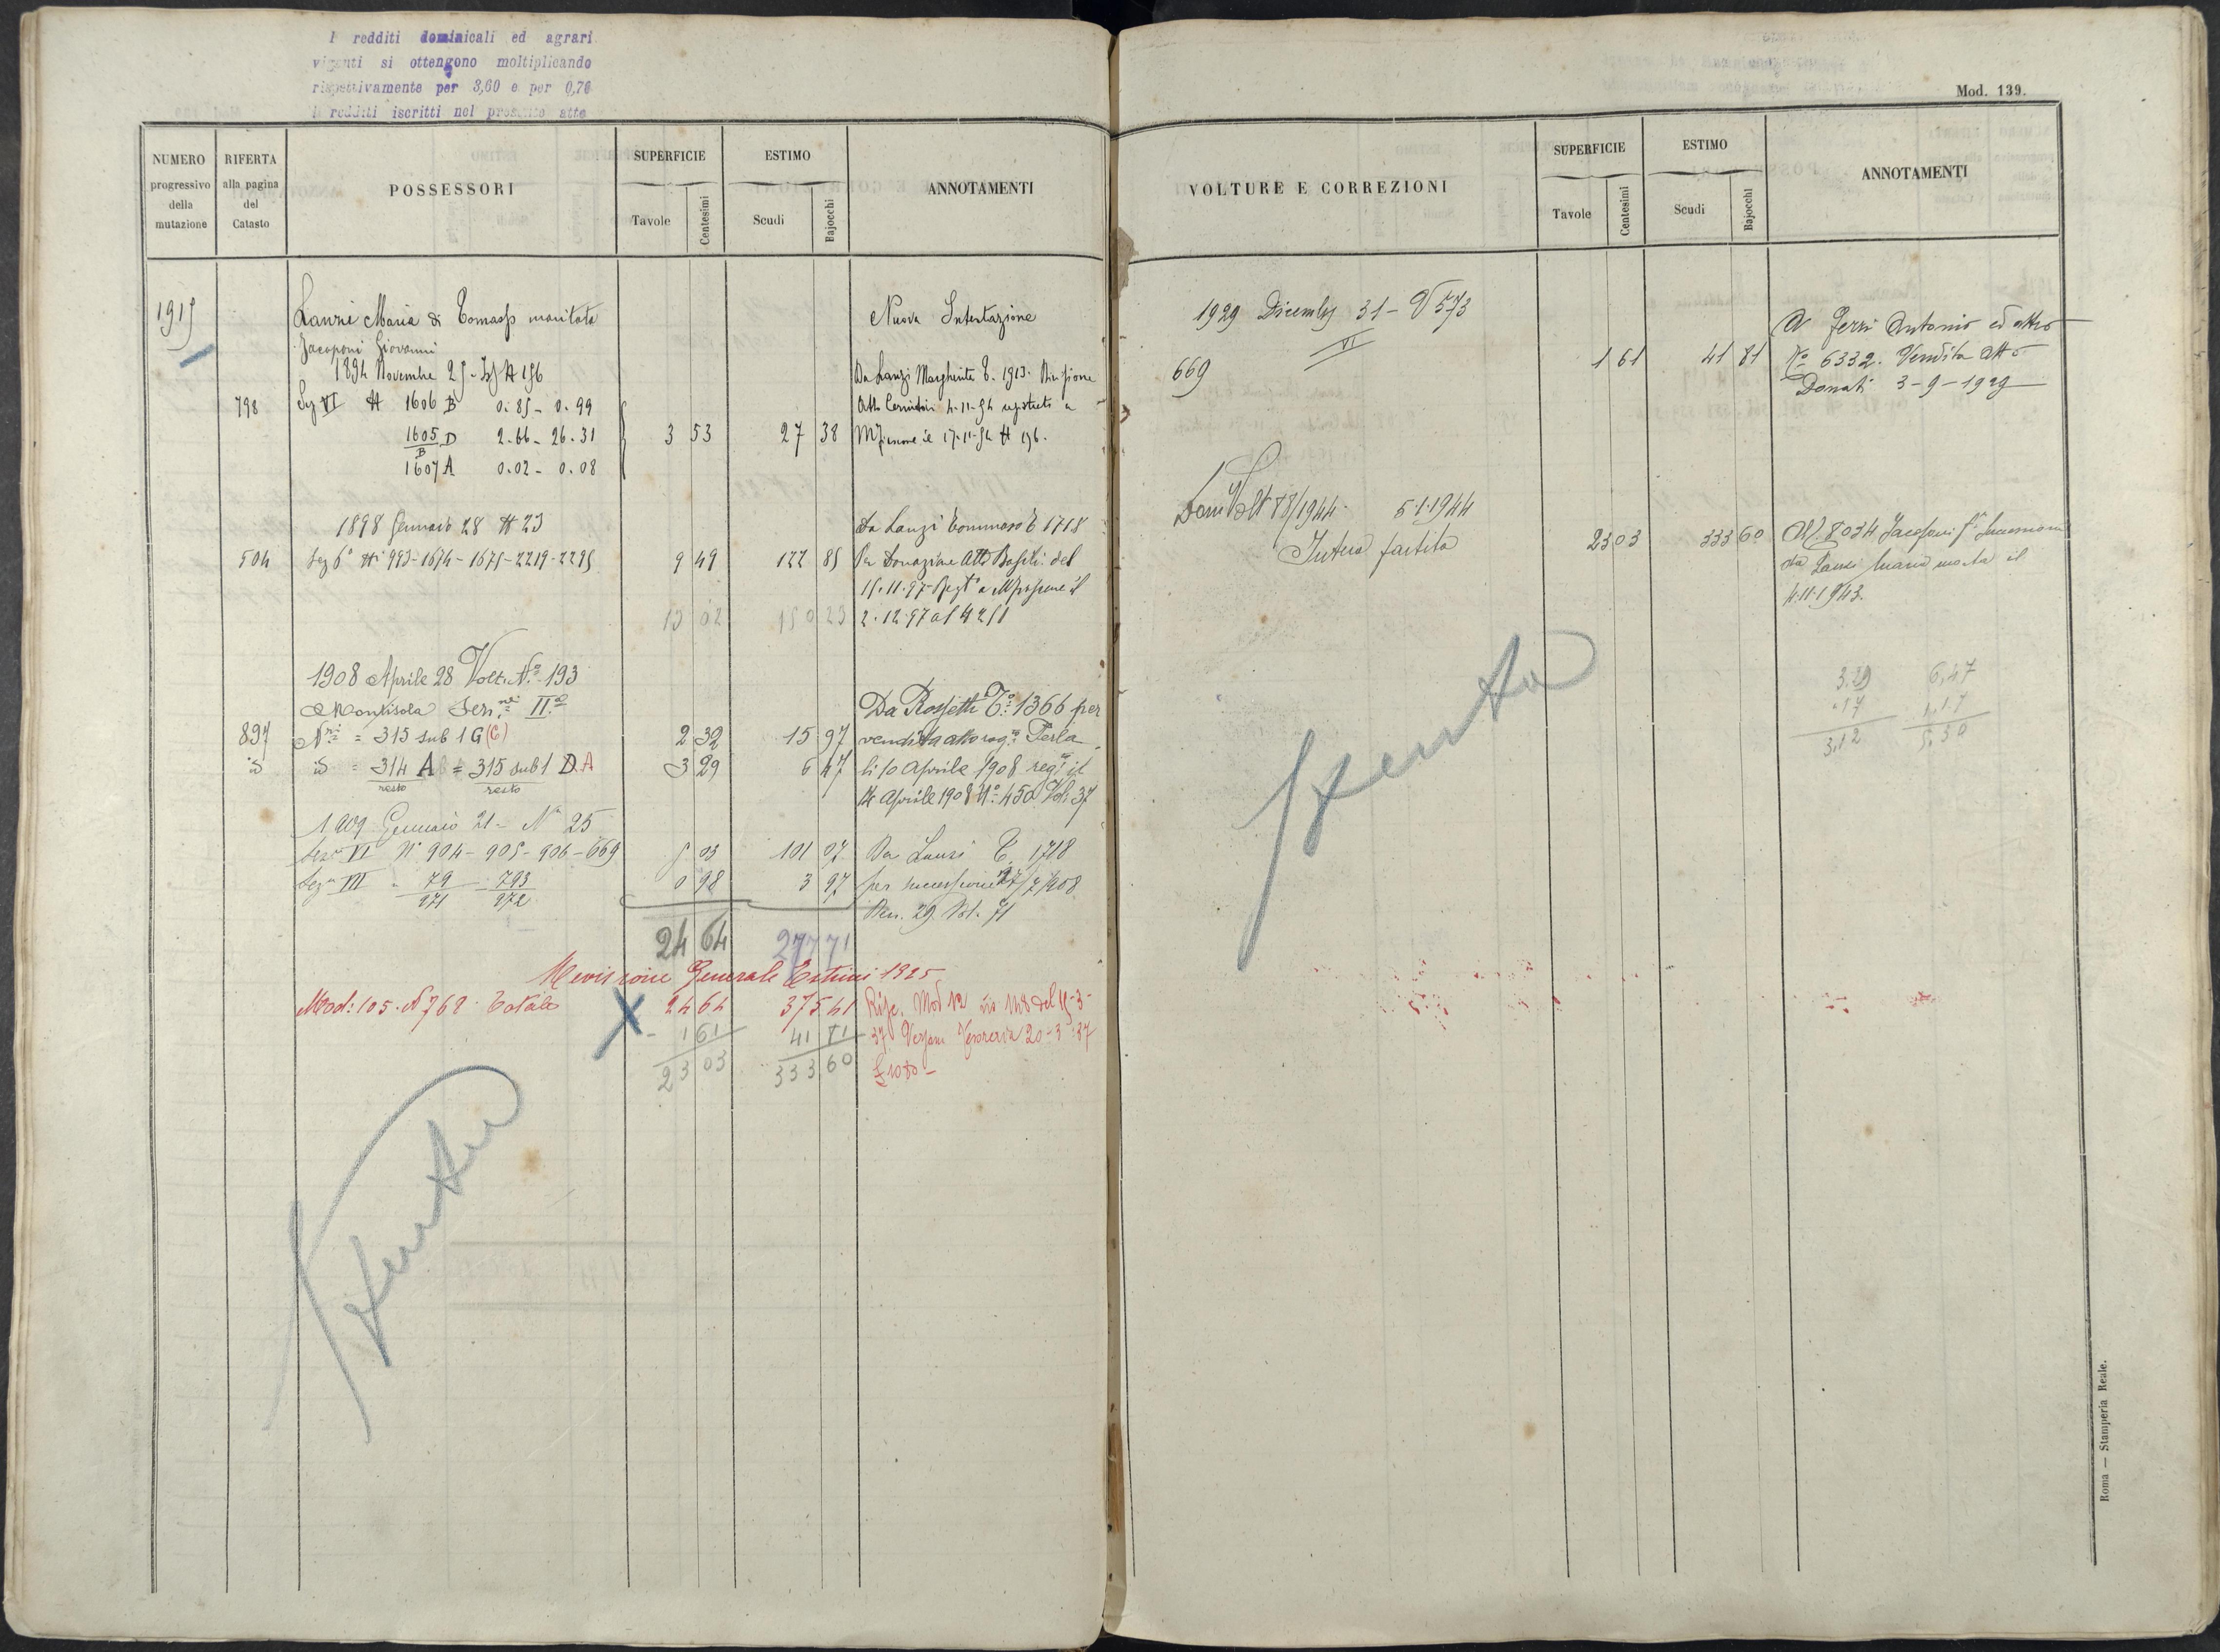 I redditi dominicali ed agrari
vigenti si ottengono moltiplicando
rispettivamente per 3,60 e per 0,70
i redditi iscritti nel presente atto
NUMERO progressivo della mutazione
RIFERTA alla pagina del Catasto
POSSESSORI
SUPERFICIE
Tavole Centesimi
ESTIMO
Scudi Bajocchi
ANNOTAMENTI
1915
Lanzi Maria di Tomasso maritata Nuova Intestazione
Jacoponi Giovanni
1894 Novembre 25 - № 196 Da Lanzi Margherita T. 1913. Divisione
798 Sez VI № 1606 B 0.85 - 0.99 Atto 4-11-94 registrato a
1605/B D 2.66 - 26.31 3 53 27 38 il 17-11-94 № 196.
1607 A 0.02 - 0.08
1898 Gennaio 28 № 23 Da Lanzi Tommaso T 1718
504 Sez 6ª № 993-1674-1675-2219-2295 9 49 122 85 Per Donazione Atto Basili del
15.11.97 Regto a il
13 02 150 23 2.12.97 al № 251
1908 Aprile 28 Volt. No. 193
Montisola Sezne IIa Da Rossetti To. 1366 per
897 Nri = 315 sub 1 G (C) 2 32 15 97 vendita atto rogo Perla
id id = 314 A = 315 sub 1 D.A 3 29 6 47 li 10 Aprile 1908 regto il
resto resto 14 Aprile 1908 No. 450 Vol. 37
1909 Gennaio 21 - No 25
Sezne VI No 904-905-906-669 5 03 101 07 Da Lanzi T. 1718
Sezne III 79/271 793/272 0 98 3 97 per successione 27/7/1908
Den. 29 Vol. 71
24 64 277 71
Revisione Generale Estimi 1925
Mod: 105. N 768 Totale X 24 64 375 41 Rife. Mod 12 no 148 del 15-3-
- 1 61 41 81 37. Tesoreria 20-3-37
23 03 333 60 £
Stenta
Mod. 139.
VOLTURE E CORREZIONI
SUPERFICIE
Tavole Centesimi
ESTIMO
Scudi Bajocchi
ANNOTAMENTI
1929 Dicembre 31 - V 573
A Ferri Antonio ed altro
VI
669 1 61 41 81 No 6332. Vendita Atto
Donati 3-9-1929
Dom Volt 88/1944. 5.1.1944
Intera partita 23 03 333 60 Al. 8034 Jacoponi Successione
da Lanzi Maria morta il
4.11.1943.
3,29 6,47
.17 1.17
3,12 5.30
Stenta
Roma — Stamperia Reale.